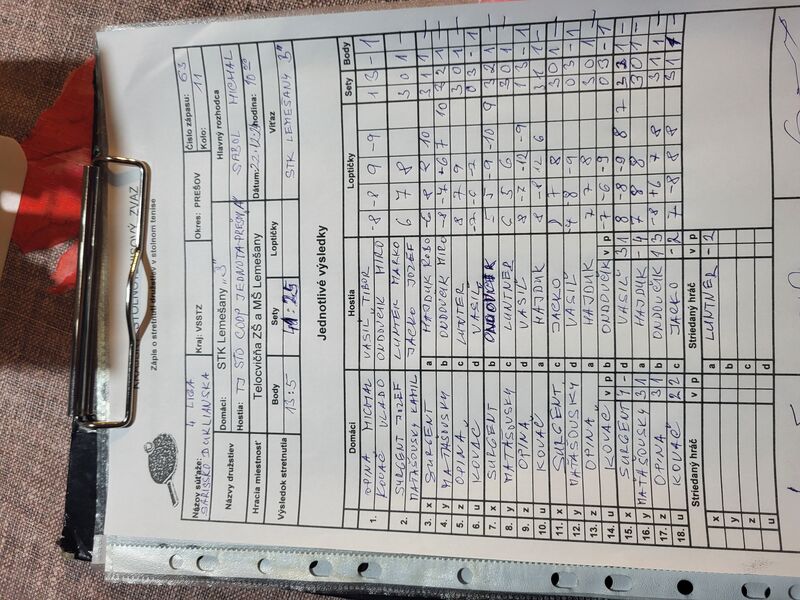 ZVÄZ
Zápis o stretnutí družstiev v stolnom tenise
Názov súťaže: 4 LIGA Kraj: VSSTZ Okres: PREŠOV Číslo zápasu: 63
DUKLIANSKA Kolo: 11
Názvy družstiev Domáci: STK Lemešany "B" Hlavný rozhodca
Hostia: TJ STO COOP JEDNOTA SABOL MICHAL
Hracia miestnosť Telocvičňa ZŠ a MŠ Lemešany Dátum: hodina: 10 00
Výsledok stretnutia Body Sety Loptičky Víťaz
13:5 41:25 STK LEMEŠANY "B"
Jednotlivé výsledky
Domáci Hostia Loptičky Sety Body
1. OPINA MICHAL VASIĽ TIBOR -8 -8 9 -9 1 3 - 1
KOVAČ VLADO ONDOVČÍK MIRO
2. SURGENT JOZEF LUNTER MARKO 6 7 8 3 0 1 -
MAŤAŠOVSKÝ KAMIL JACKO JOZEF
3. x SURGENT a HAJDUK ROBO -6 8 8 10 3 1 1 -
4. y MAŤAŠOVSKY b ONDOVČIK MIRO -8 -7 +6 7 10 3 2 1 -
5. z OPINA c LUNTER 8 7 9 3 0 1 -
6. u KOVAČ d VASIĽ -7 -6 -2 0 3 - 1
7. x SURGENT b ONDOVČIK 5 5 -9 -10 9 3 2 1 -
8. y MAŤAŠOVSKY c LUNTNER 6 5 6 3 0 1 -
9. z OPINA d VASIĽ 8 -7 -12 -9 1 3 - 1
10. u KOVAČ a HAJDUK 8 -8 12 6 3 1 1 -
11. x SURGENT c JACKO 7 8 3 0 1 -
12. y MAŤAŠOVSKÝ d VASIĽ -4 -8 -9 0 3 - 1
13. z OPINA a HAJDUK 7 7 8 3 0 1 -
14. u KOVAČ v p b ONDOVČIK v p -7 -6 -9 0 3 - 1
15. x SURGENT d VASIĽ 3 1 8 -8 -9 8 7 3 1 -
16. y MAŤAŠOVSKY 3 1 a HAJDUK - 4 7 8 8 3 0 1 -
17. z OPINA 3 1 b ONDOVČIK 1 3 -8 +6 7 8 3 1 1 -
18. u KOVAČ 2 2 c JACKO - 2 7 -8 8 8 3 1 1 -
Striedaný hráč v p Striedaný hráč v p
x a LUNTNER - 2
y b
z c
u d